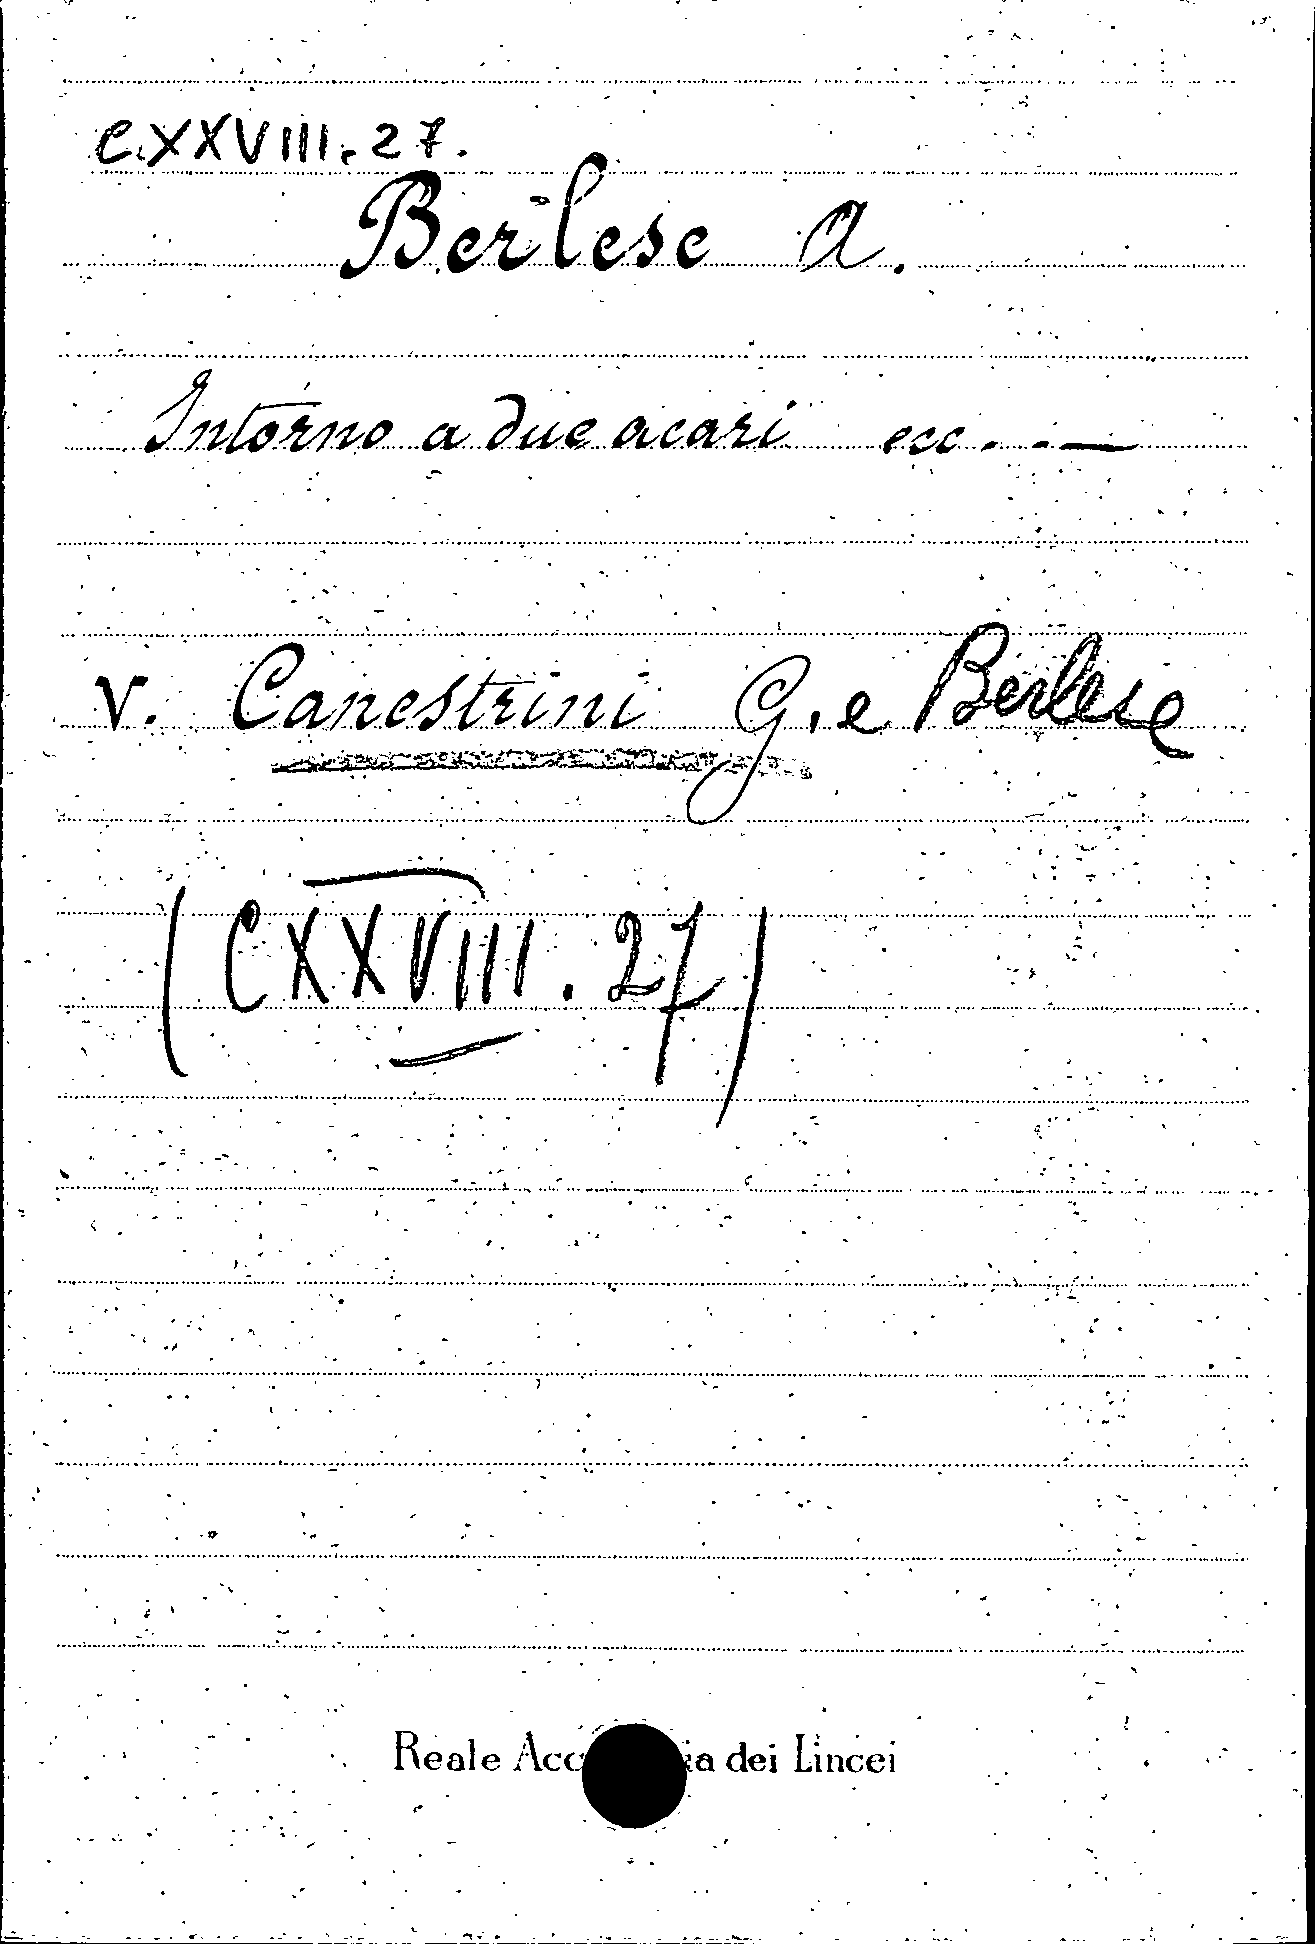 CXXVIII. 27.
Berlese A.
Intorno a due acari ecc. . . —
v. Canestrini G. e Berlese
(CXXVIII. 27)
Reale Acc ia dei Lincei